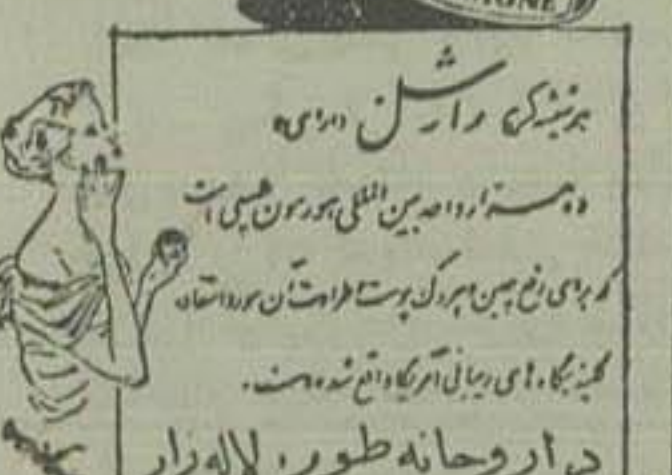 هر شیشه کرم مارشل دارای
ده هزار واحد بین المللی هورمون طبیعی است
که برای رفع چین و چروک پوست و طراوت آن مورد استفاده
کلیه بنگاه های زیبائی آمریکا واقع شده است.
در داروخانه طور، لاله زار